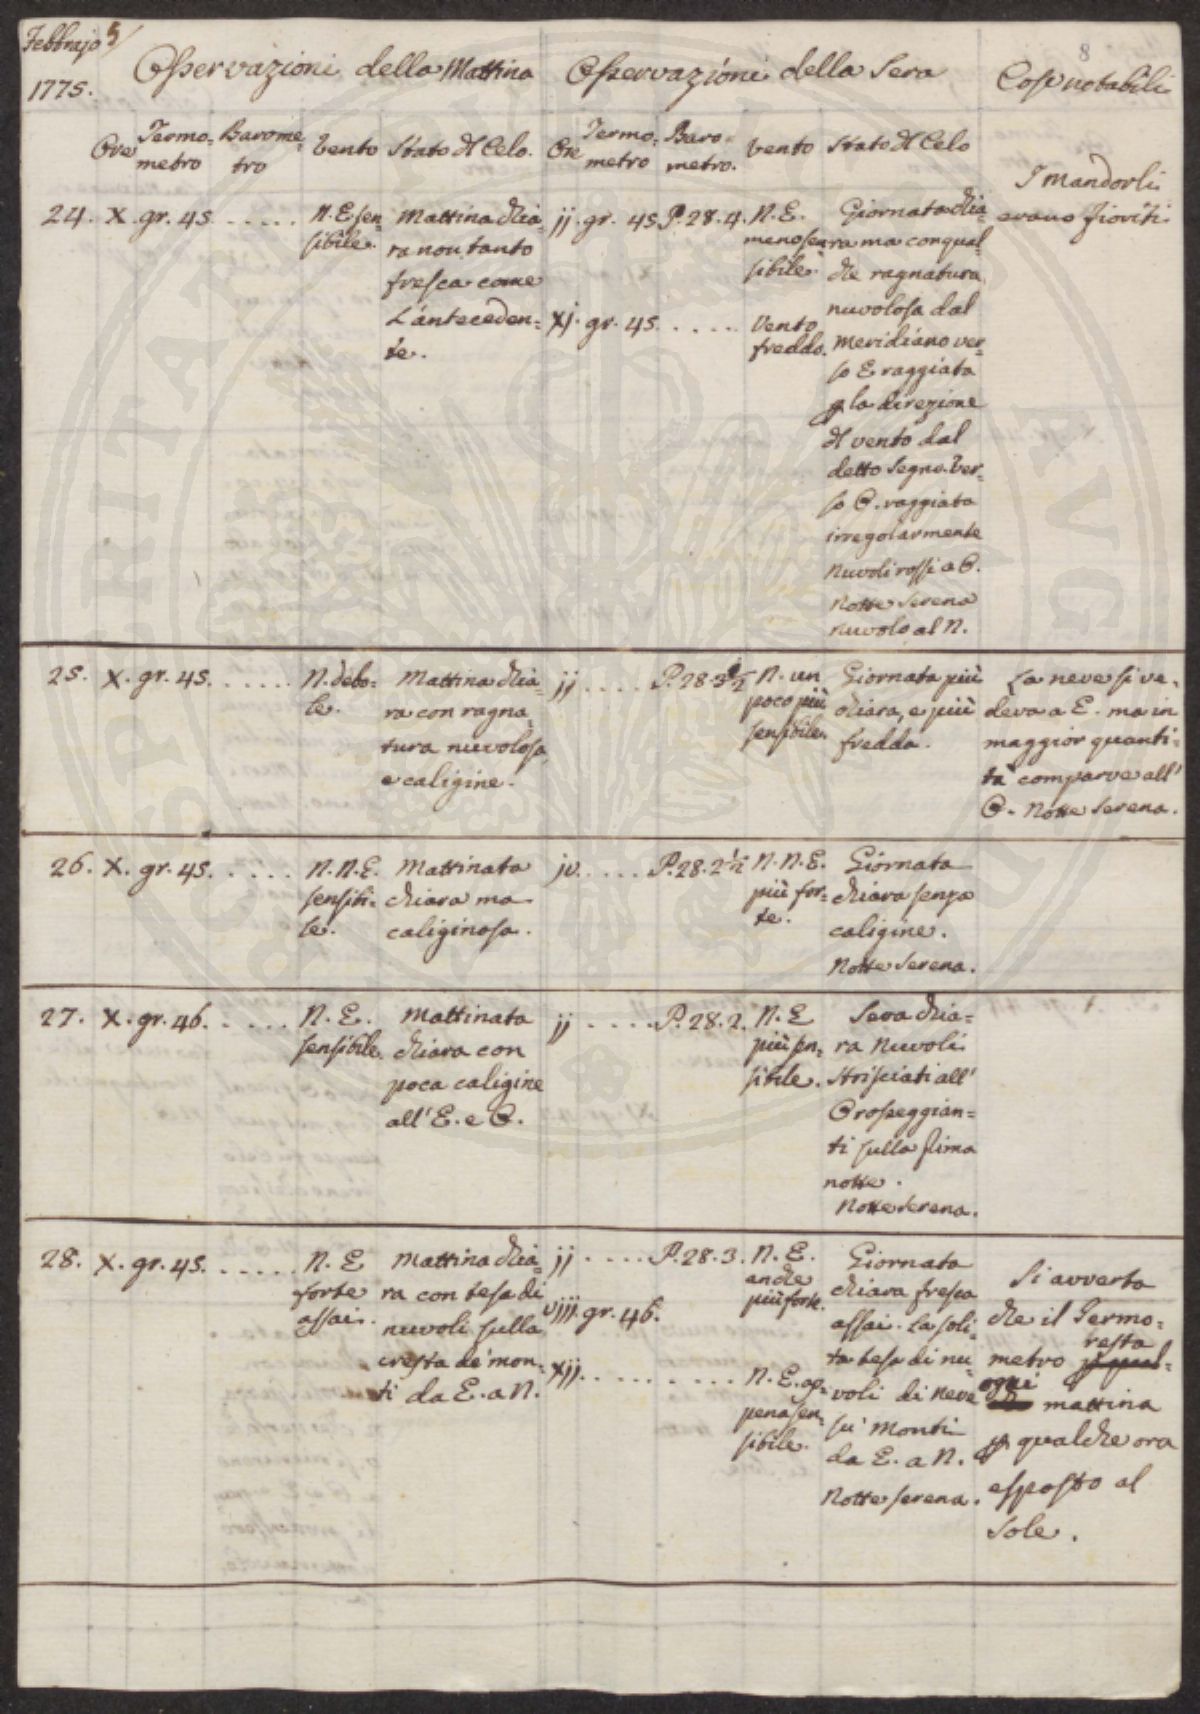 Febbrajo 5/
1775.
8
Osservazioni della Mattina
Osservazioni della Sera
Cose notabili
Ore Termo- Barome-
metro tro
Vento Stato dl Celo.
Ore Termo- Baro-
metro metro.
Vento Stato dl Celo
24. X. gr. 45 . . . . .
N. E. sen-
sibile.
Mattina chia-
ra non tanto
fresca come
L'anteceden-
te.
jj. gr. 45. P. 28. 4.
N. E.
meno sen-
sibile.
xj. gr. 45. . . . . .
Vento
freddo.
Giornata chia-
ra ma con qual-
che ragnatura
nuvolosa dal
meridiano ver-
so E raggiata
p la direzione
dl vento dal
detto segno. Ver-
so O. raggiata
irregolarmente
Nuvoli rossi a O.
Notte Serena
nuvolo al N.
I Mandorli
erano fioriti
25. X. gr. 45. . . . . .
N. debo-
le.
Mattina chia-
ra con ragna-
tura nuvolosa
e caligine.
jj . . . . P. 28. 3 1/2
N. un
poco più
sensibile.
Giornata più
chiara, e più
fredda.
La neve si ve-
deva a E. ma in
maggior quanti-
tà comparve all'
O. Notte Serena.
26. X. gr. 45. . . . . .
N. N. E.
sensibi-
le.
Mattinata
chiara ma
caliginosa.
jv. . . . . P. 28. 2 1/2
N. N. E.
più for-
te.
Giornata
chiara senza
caligine.
Notte Serena.
27. X. gr. 46. . . . . .
N. E.
sensibile.
Mattinata
chiara con
poca caligine
all' E. e O.
jj . . . . P. 28. 2.
N. E
più sen-
sibile.
Sera chia-
ra Nuvoli
strisciati all'
O rosseggian-
ti sulla prima
notte.
Notte Serena.
28. X. gr. 45. . . . . .
N. E
forte
assai.
Mattina chia-
ra con tesa di
nuvoli sulla
cresta de' mon-
ti da E. a N.
jj . . . . P. 28. 3.
N. E.
anche
più forte.
viij. gr. 46.
xjj. . . . . . . . .
N. E. ap-
pena sen-
sibile.
Giornata
chiara fresca
assai. La soli-
ta tesa di nu-
voli di neve
su' Monti
da E. a N.
Notte serena.
Si averta
che il Termo-
resta
metro
ogni
mattina
p qualche ora
esposto al
Sole.